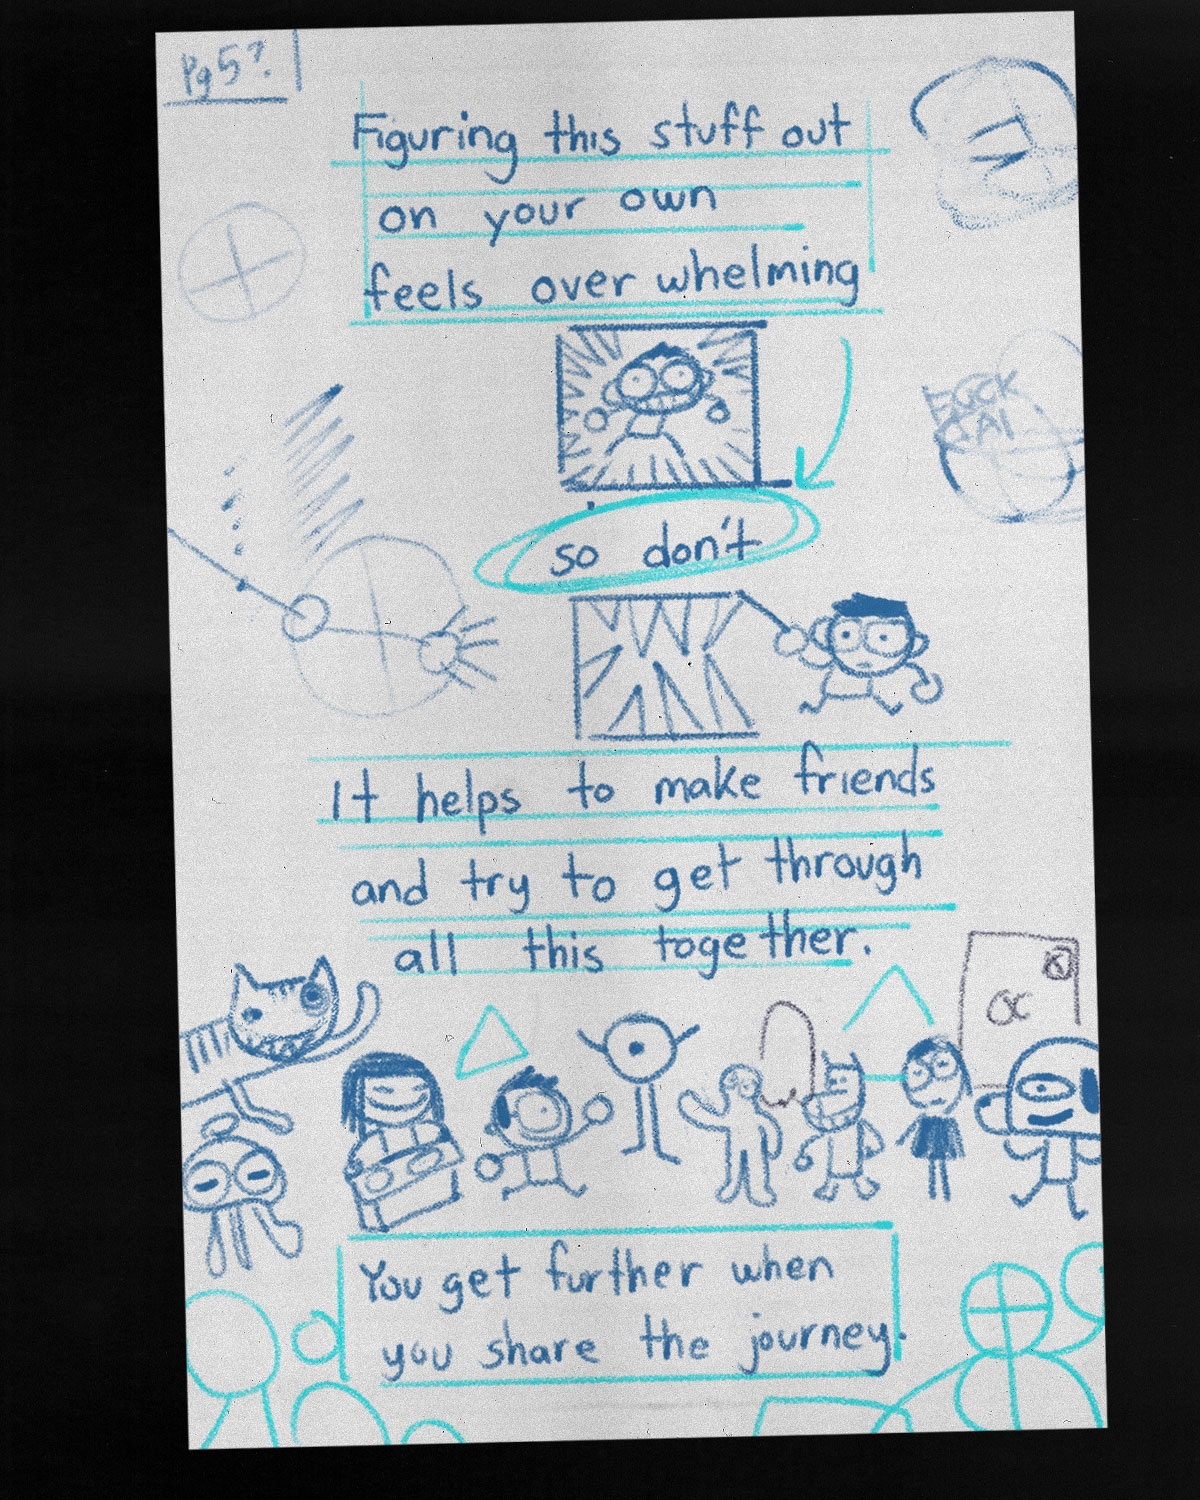 Pg 5?
Figuring this stuff out
on your own
feels overwhelming
so don't
It helps to make friends
and try to get through
all this together.
You get further when
you share the journey.